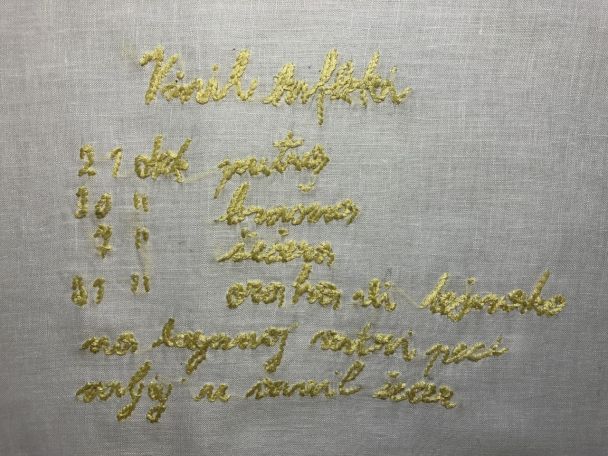 Vanil kifleki
21 dek putra
30 " brašna
7 " šećera
11 " oraha ili lejšnake
na laganoj vatri peci
uvljaj u vanil šećer